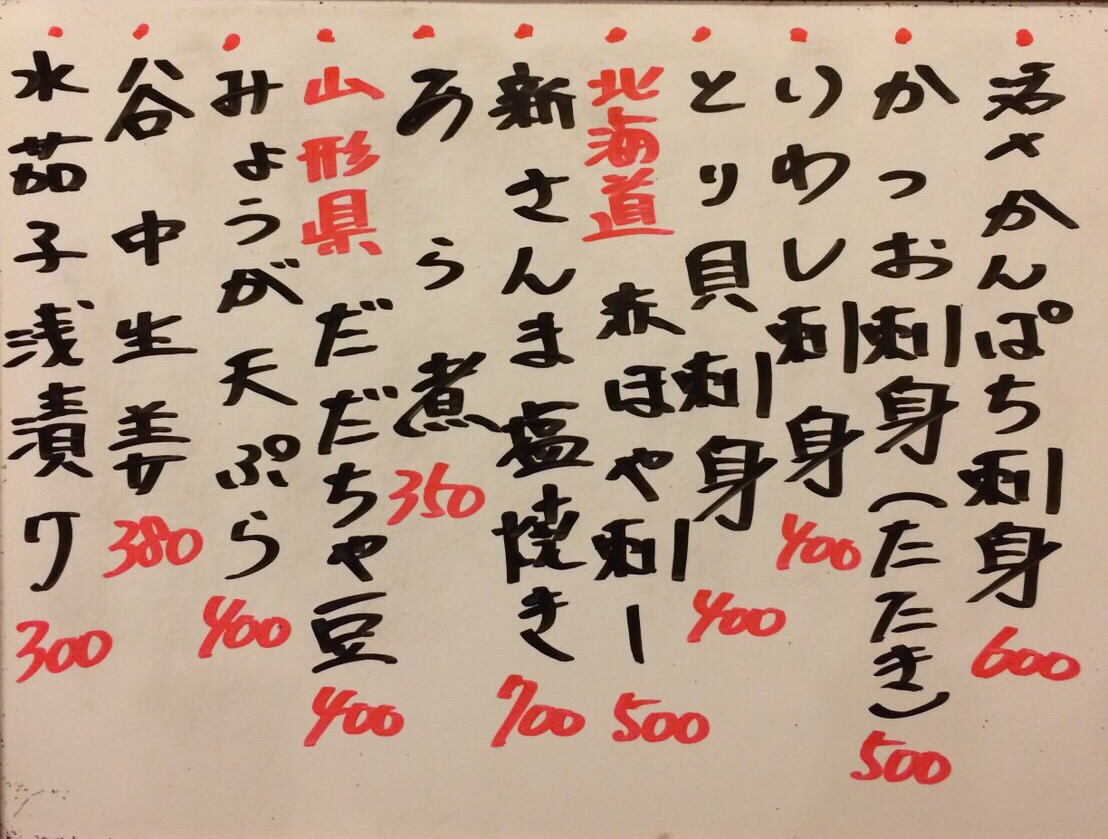 活〆かんぱち刺身 600
かつお刺身(たたき) 500
いわし刺身 400
とり貝刺身 400
北海道 赤ほや刺し 500
新さんま塩焼き 700
あら煮 350
山形県 だだちゃ豆 400
みょうが天ぷら 400
谷中生姜 380
水茄子浅漬け 300